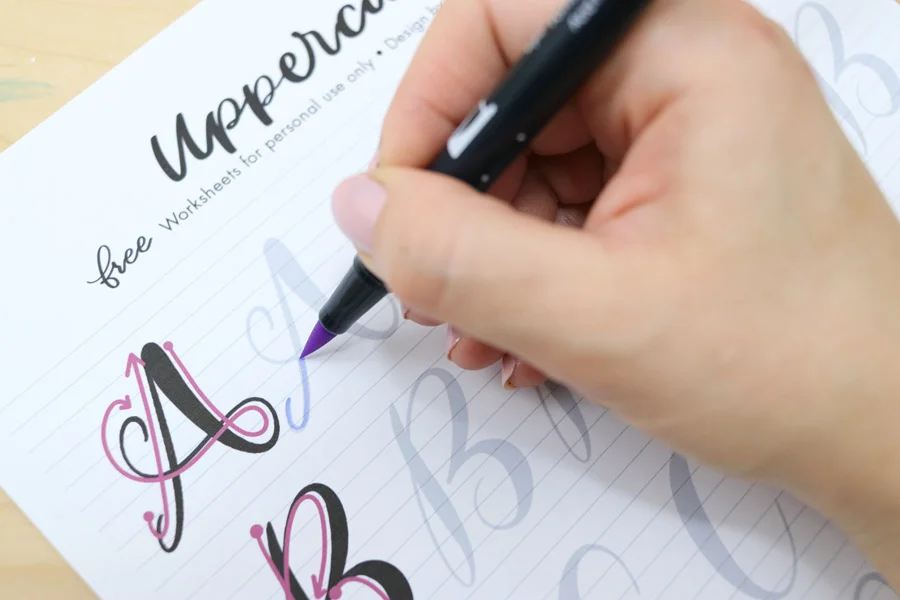 free Worksheets for personal use only • Design
A A
B B